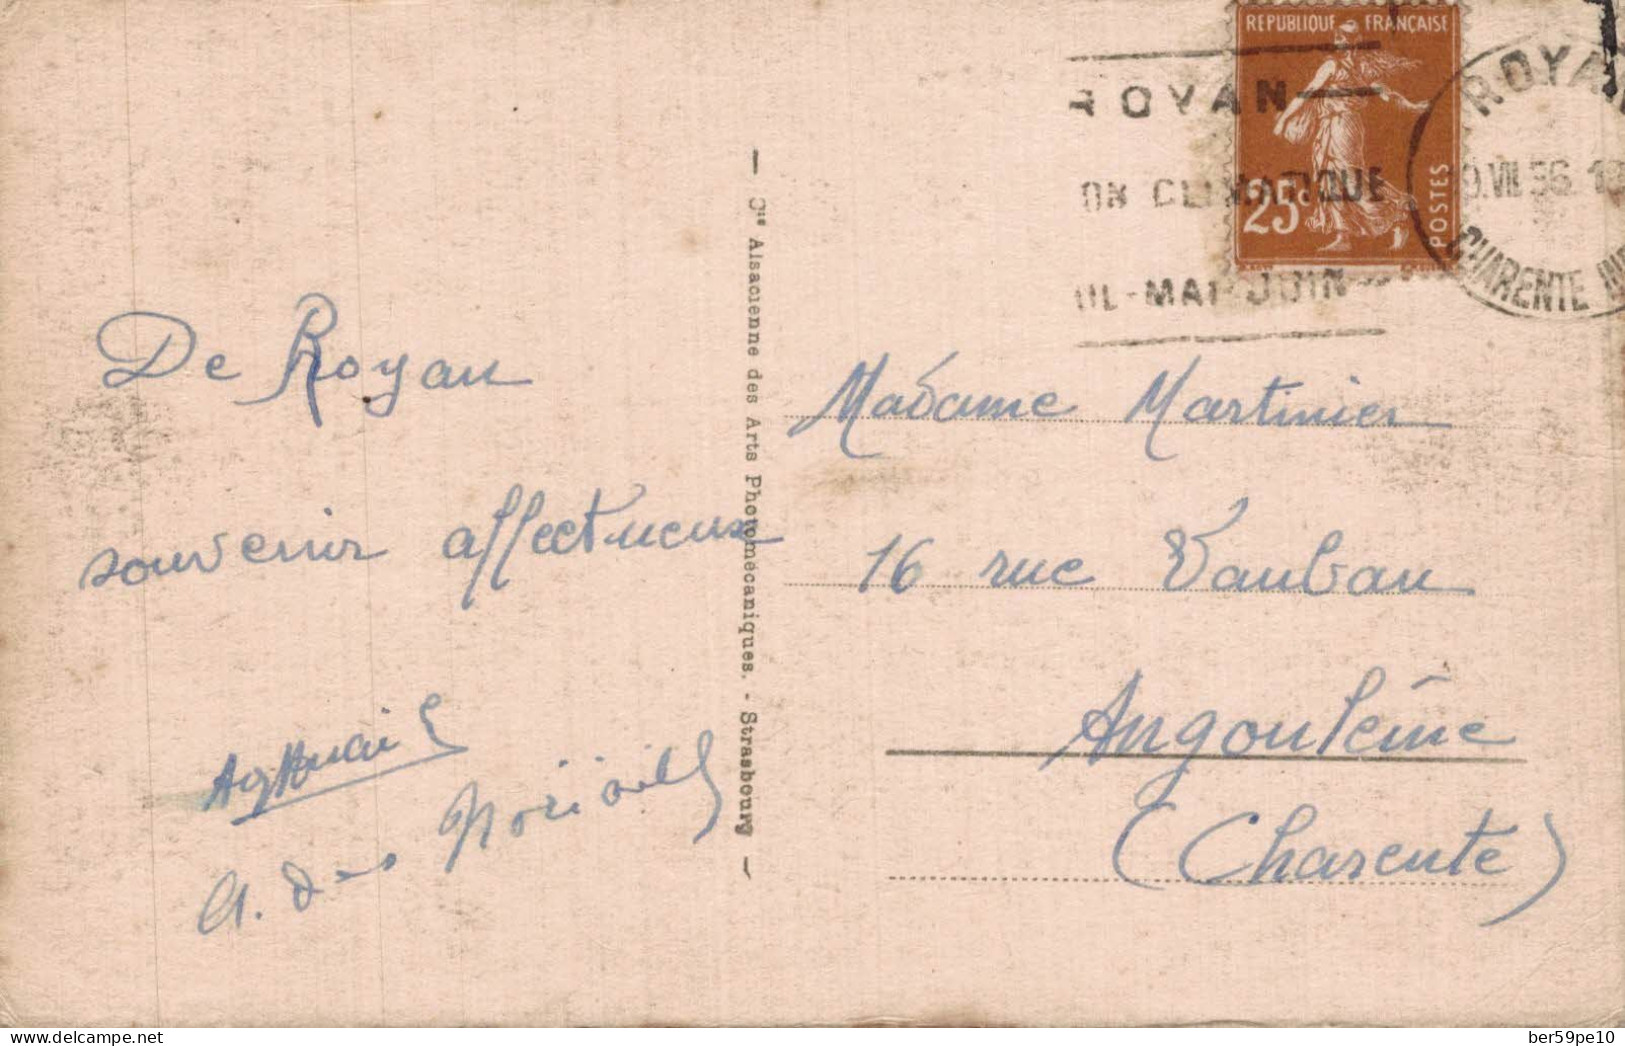 REPUBLIQUE FRANÇAISE
25c
POSTES
ROYAN
ON CLIMATIQUE
RIL-MAI-JUIN
ROYAN
9.VII.36.
CHARENTE INF
De Royan
souvenir affectueux
A. des
Cie Alsacienne des Arts Photomécaniques. - Strasbourg
Madame Martinier
16 rue Vauban
Angoulême
(Charente)
delcampe.net
ber59pe10